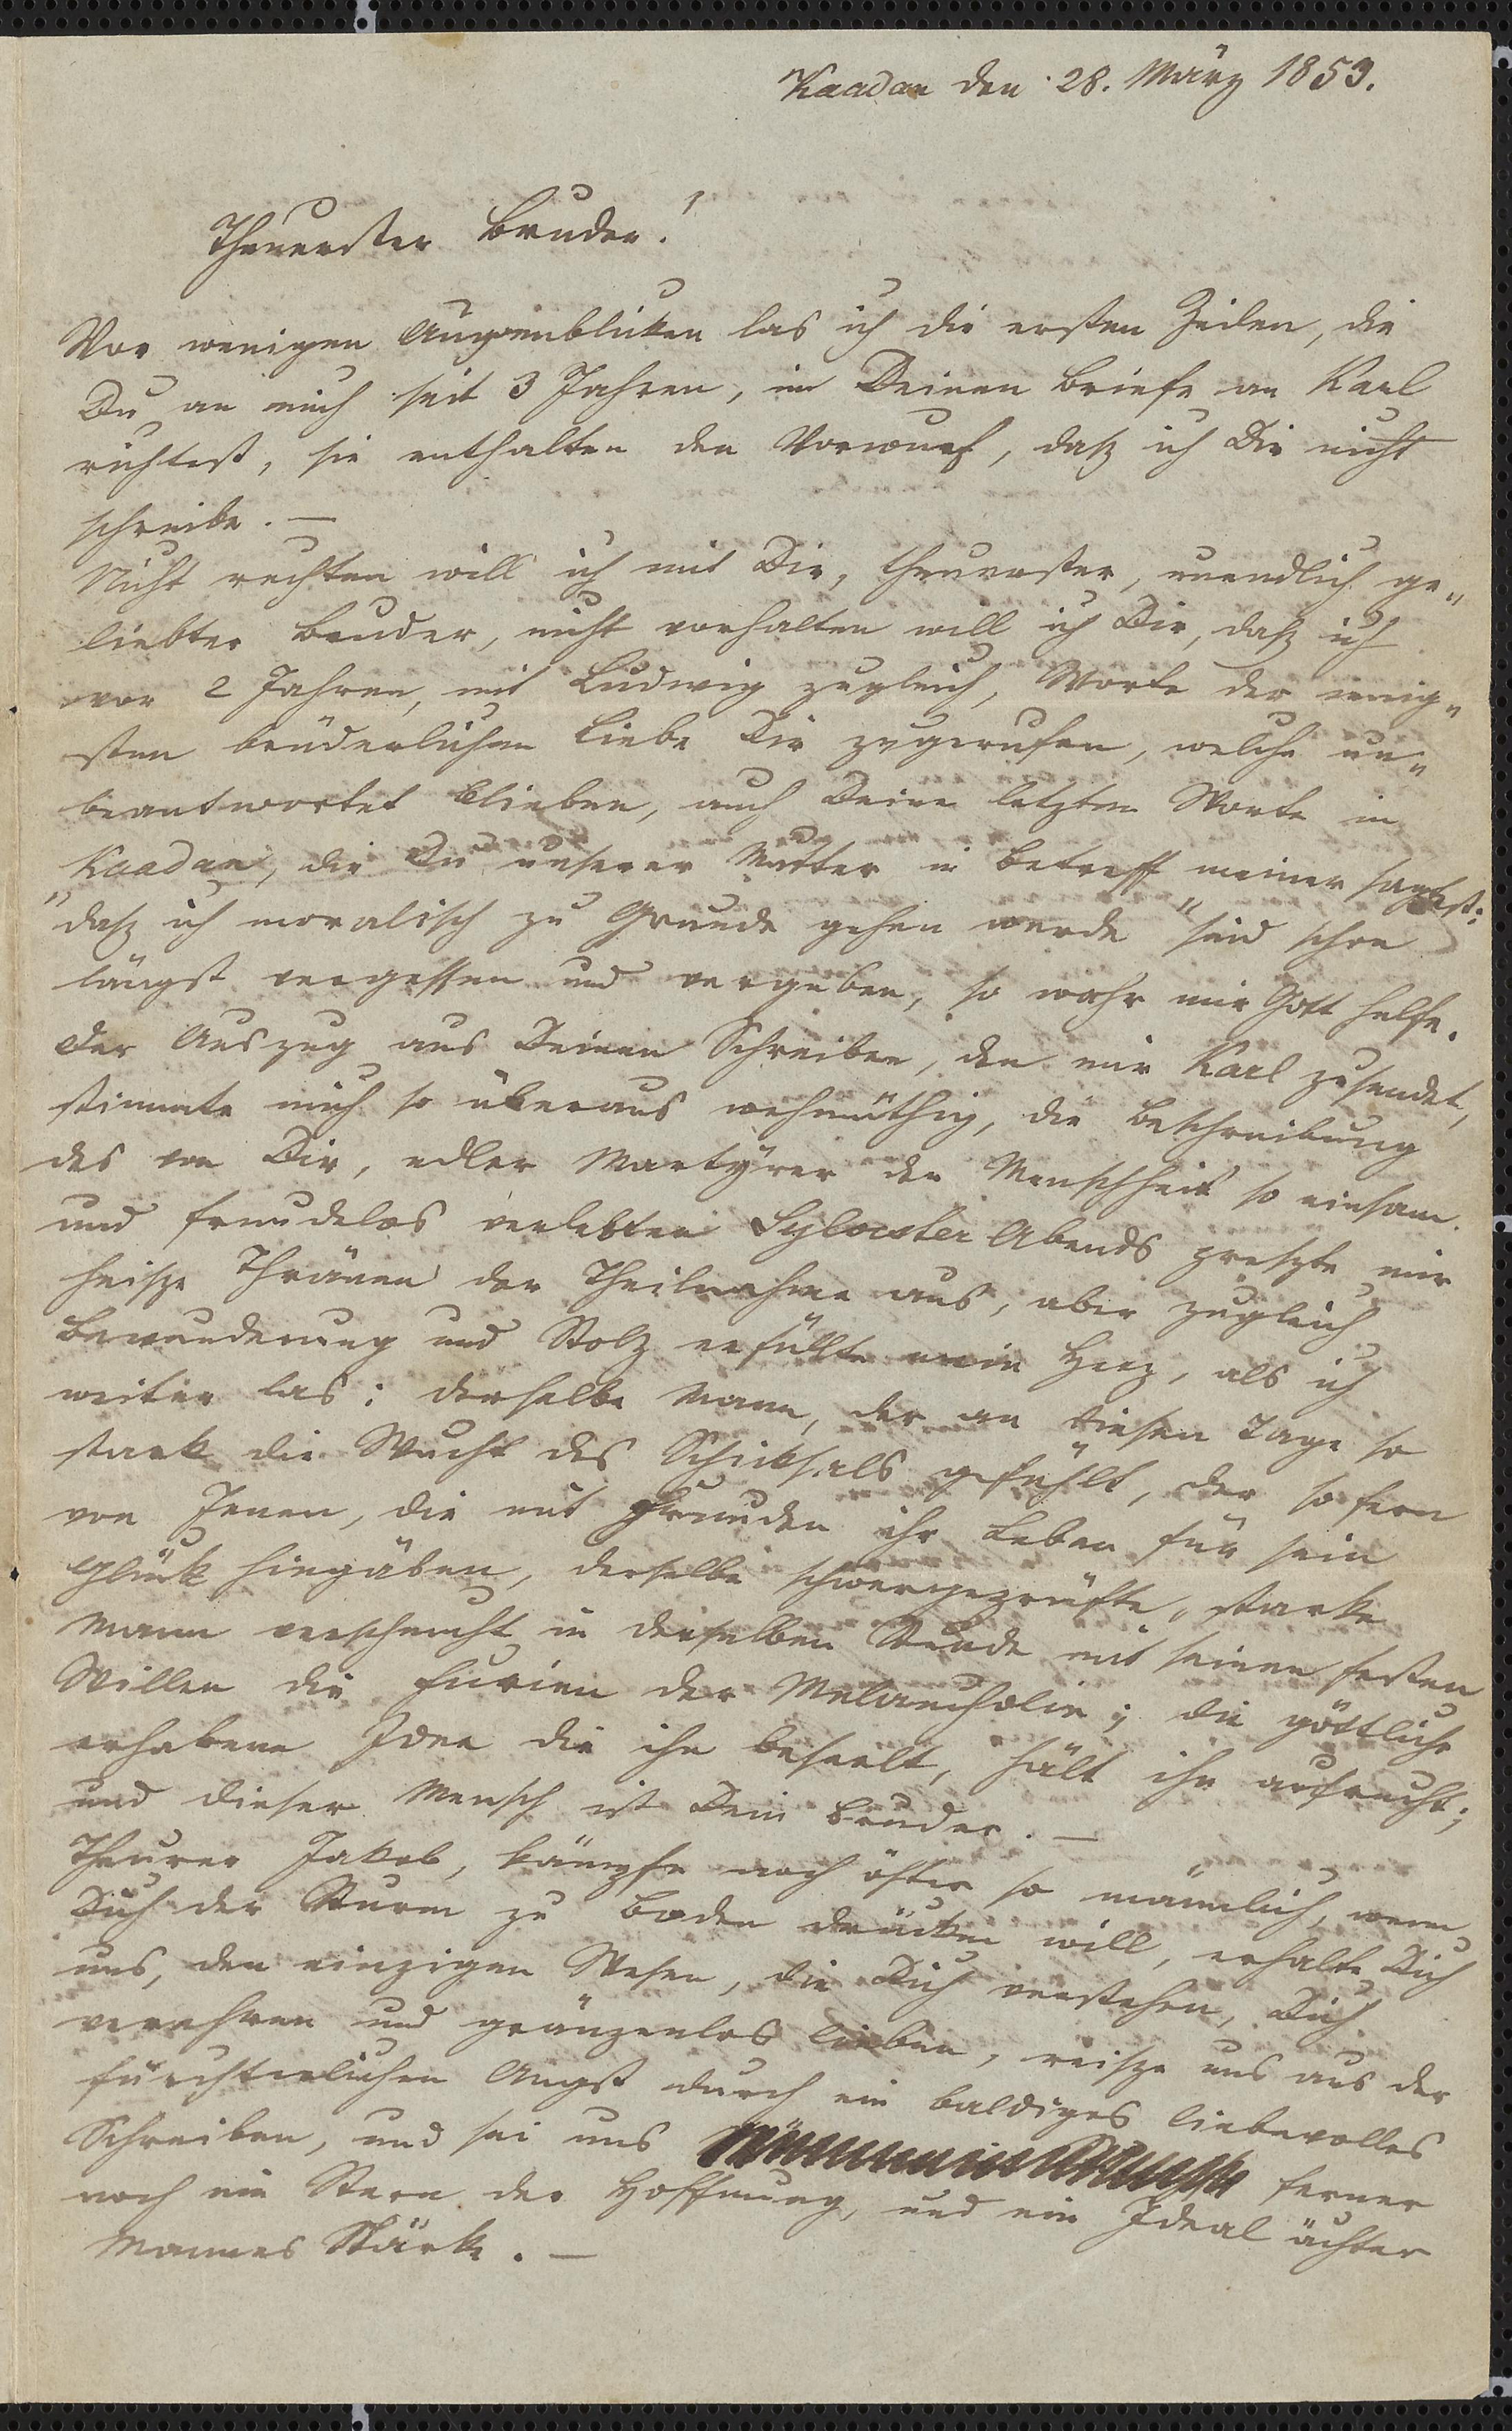 Kaadan den 28. März 1853.
Theuerster Bruder!
Vor wenigen Augenblicken las ich die ersten Zeilen, die
Du an mich seit 3 Jahren, im Deinen Briefe an Karl
richtest, sie enthalten den Vorwurf, daß ich Dir nicht
schreibe. —
Nicht rechten will ich mit Dir, theuerster, unendlich ge„
liebter Bruder, nicht vorhalten will ich Dir, daß ich
vor 2 Jahren, mit Ludwig zugleich, Worte der innig„
sten brüderlichen Liebe Dir zugerufen, welche un„
beantwortet blieben, auch Deine letzten Worte in
Kaadan, die Du unserer Mutter in Betreff meiner sagtest:
"daß ich moralisch zu Grunde gehen werde" sind schon
längst vergessen und vergeben, so wahr mir Gott helfe.
Der Auszug aus Deinem Schreiben, den mir Karl zusendet,
stimmte mich so überaus wehmüthig, die Beschreibung
des von Dir, edler Martÿrer der Menschheit so einsam
und freudelos verlebten Sylvester Abends preszte mir
heisze Thränen der Theilnahme aus, aber zugleich
Bewunderung und Stolz erfüllte mein Herz, als ich
weiter las: derselbe Mann, der an diesem Tage so
stark die Wucht des Schicksals gefühlt, der so fern
von Jenen, die mit Freuden ihr Leben für sein
Glück hingäben, derselbe schwergeprüfte, starke
Mann verscheucht in derselben Stunde mit seinem festen
Willen die Furien der Melancholie; die göttliche
erhabene Idee die ihn beseelt, hält ihn aufrecht;
und dieser Mensch ist Dein Bruder. —
Theurer Jakob, kämpfe noch öfter so männlich, wenn
Dich der Sturm zu Boden drücken will, erhalte Dich
uns, den einzigen Wesen, die Dich verstehen, Dich
verehren und gränzenlos lieben, reisze uns aus der
fürchterlichen Angst durch ein baldiges liebevolles
Schreiben, und sei uns ferner
noch ein Stern der Hoffnung, und ein Ideal ächter
Mannes Stärke. —